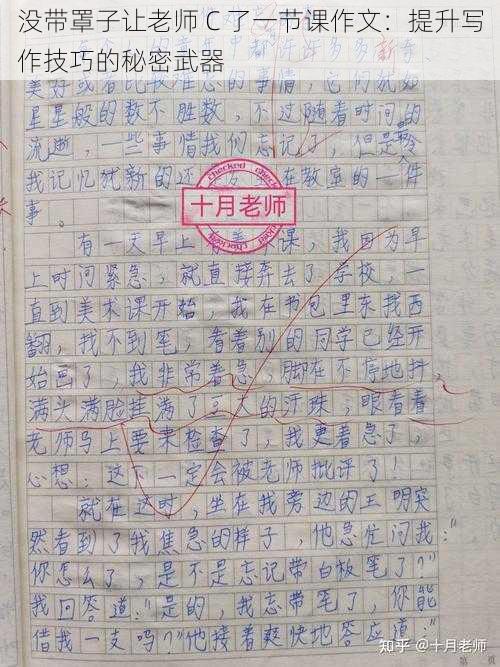 没带罩子让老师 C 了一节课作文：提升写
作技巧的秘密武器
美好或者比较难忘的事情，它们就如
星星般的数不胜数，不过随着时间的
流逝，一些事情我们忘记了，但是最令
我记忆犹新的还 在教室的一件
事。
checked
十月老师
checked
有一天早上 课，我因为早
上时间紧急，就直接奔去了学校，一
直到美术课开始，我在书包里东找西
翻，找不到笔，看着别的同学已经开
始画了，我非常着急，脚在不停地抖
满头满脸挂满了豆大的汗珠，眼看着
老师马上要来检查了，我更着急了，
心想：这下一定会被老师批评了！
就在这时，坐在我旁边的王明突
然看到了我焦急的样子，他急忙问我：“
你怎么了，是不是忘记带白板笔了？”
我回答道：“是的，我忘带笔了，你能
借我一支吗？”他接着爽快地答应道：“
知乎 @十月老师